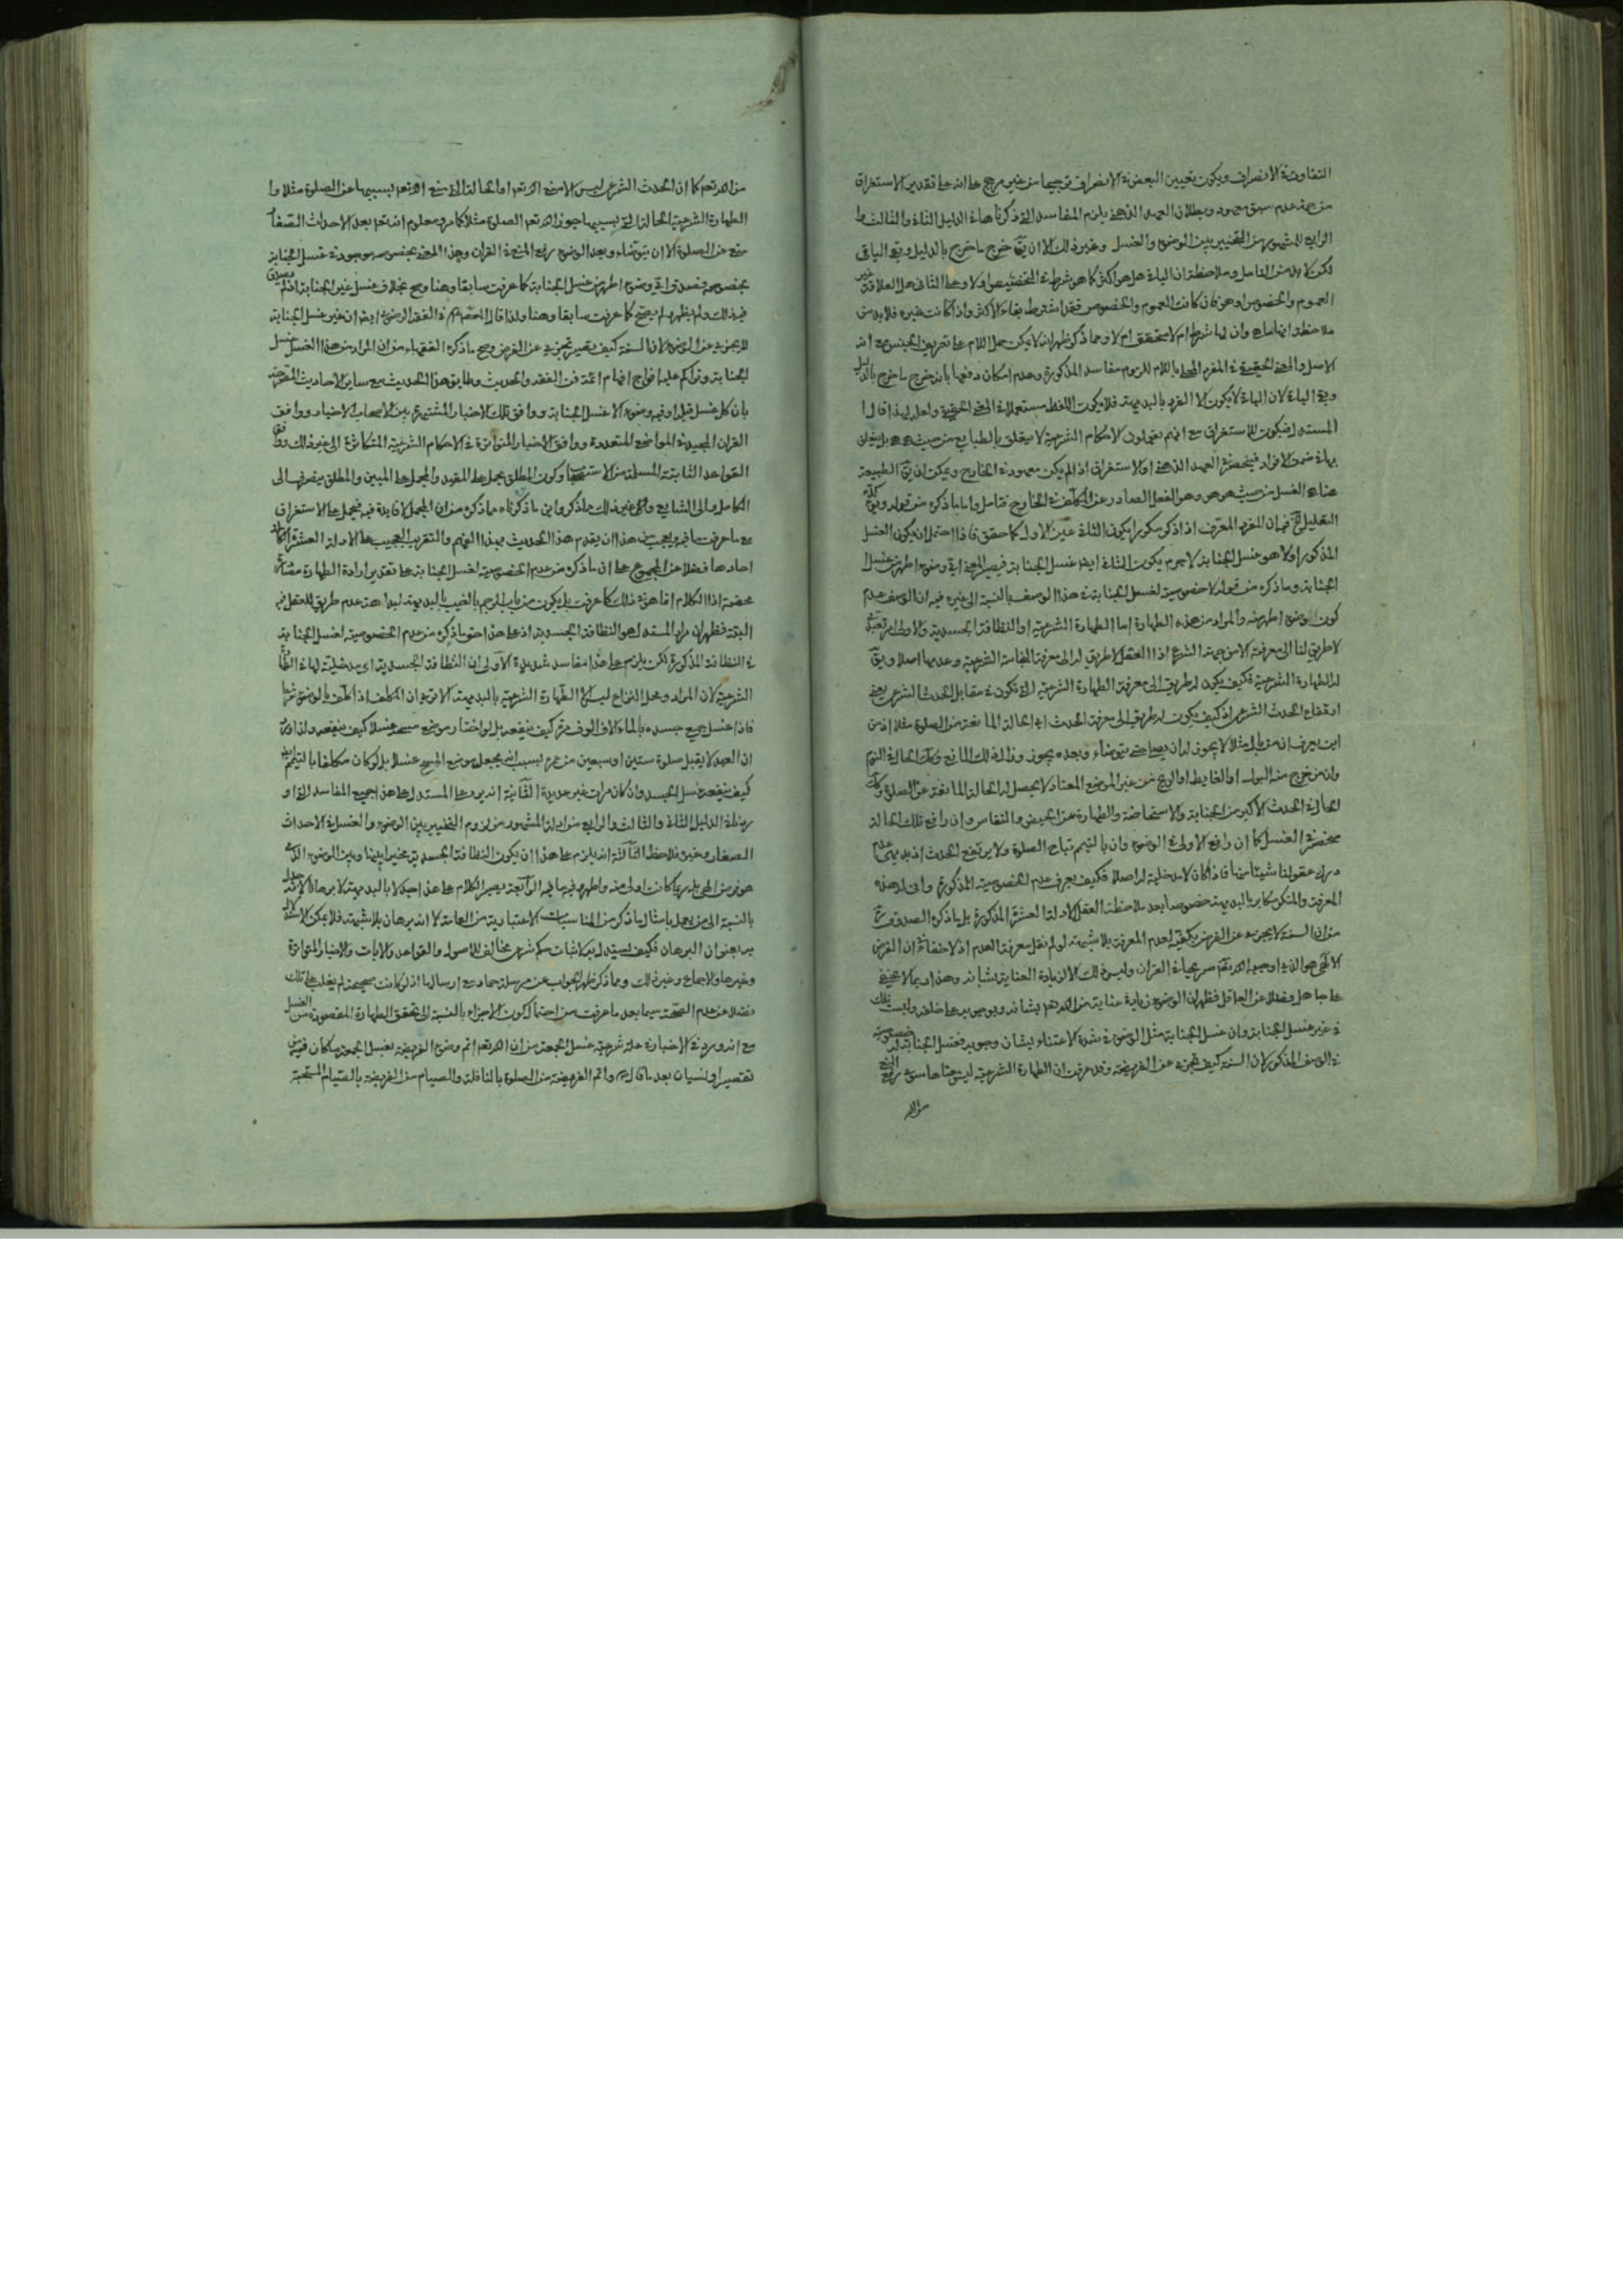 التفاوت في الانصراف ويكون تعيين البعض في الانصراف ترجيحا من غير مرجح على انه على تقدير الاستغراق
من جهة عدم سبق معهود وبطلان العهد الذهني يلزم المفاسد التي ذكرناها في الدليل الثاني والثالث و
الرابع للمشهور من التخيير بين الوضوء والغسل وغير ذلك الا ان يق خرج ما خرج بالدليل وبقي الباقي
لكن لا بد من التامل وملاحظة ان الباقي هل هو اكثر كما هو شرط في التخصيص او لا وعلى الثاني هل العلاقة
العموم والخصوص او هو فان كانت العموم والخصوص فقد اشترط بقاء الاكثر واذا كانت غيره فلا بد من
ملاحظة انها ما هي وان لها شرط ام لا متحقق ام لا ومما ذكر ظهر انه لا يمكن حمل اللام على تعريف الجنس مع انه
الاصل والمعنى الحقيقي في المفرد المحلى باللام للزوم مفاسد المذكورة وعدم امكان دفعها بانه خرج ما خرج بالدليل
وبقي الباقي لان الباقي لا يكون الا الفرد بالبديهة فلا يكون اللفظ مستعملا في المعنى الحقيقي ولعله لهذا قال
المستدل فيكون للاستغراق مع انهم يقولون الاحكام الشرعية لا يتعلق بالطبايع من حيث هي هي بل يتعلق
بها في ضمن الافراد فينحصر في العهد الذهني او الاستغراق اذا لم يكن معهود في الخارج ويمكن ان يق الطبيعة
هنا هي الغسل من حيث هو هو وهو الفعل الصادر عن المكلف في الخارج فتامل واما ما ذكره من قوله
التعليل فيه ان المفرد المعرف اذا ذكر مكررا يكون الثاني عين الاول كما حقق فاذا احتمل ان يكون الغسل
المذكور اولا هو غسل الجنابة لا جرم يكون الثاني ايضا غسل الجنابة فيصير المعنى اي وضوء اطهر من غسل
الجنابة وما ذكره من قوله لا خصوصية لغسل الجنابة في هذا الوصف بالنسبة الى غيره فيه ان الوصف عدم
كون الوضوء اطهر منه والمراد من هذه الطهارة اما الطهارة الشرعية او النظافة الجسدية والاول امر تعبدي
لا طريق لنا الى معرفته الا من جهة الشرع اذ العقل لا طريق له الى معرفة النجاسة الشرعية وعدمها اصلا
للطهارة الشرعية فكيف يكون له طريق الى معرفة الطهارة الشرعية التي تكون في مقابل الحدث الشرعي يعني
ارتفاع الحدث الشرعي اذ كيف يكون له طريق الى معرفة الحدث اي الحالة المانعة من الصلوة مثلا اذ من
اين يعرف ان من بال مثلا لا يجوز له ان يصلي حتى يتوضاء وبعده يجوز وزال ذلك المانع وكذلك الحال في النوم
وان من خرج منه البول او الغايط او الريح من غير الموضع المعتاد لا يحصل له الحالة المانعة عن الصلوة
الحال في الحدث الاكبر من الجنابة والاستحاضة والطهارة عن الحيض والنفاس وان رافع تلك الحالة
منحصر في الغسل كما ان رافع الاولى في الوضوء وان بالتيمم تباح الصلوة ولا يرتفع الحدث اذ بديهي عدم
درك عقولنا شيئا منها فاذا كان لا مدخلية له اصلا فكيف يعرف عدم الخصوصية المذكورة وانى له هذه
المعرفة والمنكر مكابر بالبديهة خصوصا بعد ملاحظة العقل الادلة العشرة المذكورة بل ما ذكره الصدوق
من ان السنة لا يجزي عن الفرض يكفيه لعدم المعرفة بلا شبهة لو لم نقل معرفة العدم اذ لا خفاء في ان الفرض
الالهي هو الذي اوجبه الله تعم صريحا في القران وليس ذلك الا لزيادة العناية بشانه وهذا مما لا يخفى
على جاهل فضلا عن العاقل فظهر ان الوضوء زيادة عناية من الله تعم بشانه وبوجوبه على خلقه وليست تلك
في غير غسل الجنابة وان غسل الجنابة مثل الوضوء في شدة الاعتناء بشان وجوبه فغسل الجنابة له خصوصية
في الوصف المذكور لان السنة كيف تجزي عن الفريضة وقد عرفت ان الطهارة الشرعية ليس معناها سوى رفع المنع
من الله
من الله تعم كما ان الحدث الشرعي ليس الا منع الله تعم او الحالة التي منع الله تعم بسببها عن الصلوة مثلا وا
الطهارة الشرعية الحالة التي بسببها جوز الله تعم الصلوة مثلا كما مر ومعلوم انه تعم بعد الاحداث الصغار
منع عن الصلوة الا ان يتوضاء وبعد الوضوء رفع المنع في القران وهذا المعنى بخصوصه موجود في غسل الجنابة
بخصوصه فصدق اي وضوء اطهر من غسل الجنابة كما عرفت سابقا وهنا وصح بخلاف غسل غير الجنابة اذ لم
فيه ذلك ولم يظهر لم يصح كما عرفت سابقا وهنا ولذا قال المعصوم في الفقه الرضوي ايضا ان غير غسل الجنابة
لا يجزي عن الوضوء لان السنة كيف يصير تجزي عن الفرض وصح ما ذكره الفقهاء من ان المراد من هذا الغسل غسل
الجنابة وتراكم عليه افواج افهام ائمة فن الفقه والحديث وطابق هذا الحديث مع ساير الاحاديث المتضمنة
بان كل غسل قبله او فيه وضوء الا غسل الجنابة ووافق تلك الاخبار المشتهرة بين الاصحاب الاخيار ووافق
القران المجيد في المواضع المتعددة ووافق الاخبار المتواترة في الاحكام الشرعية المتكاثرة الى غير ذلك
القواعد الثابتة المسلمة من الاستصحاب وكون المطلق يحمل على المقيد والمجمل على المبين والمطلق ينصرف الى
الكامل والى الشايع والى غير ذلك مما ذكر واين ما ذكرناه مما ذكره من ان المجمل لا فايدة فيه فيحمل على الاستغراق
مع ما عرفت ما فيه ويعجب من هذا ان يقدم هذا الحديث بهذا الفهم والتقريب العجيب على الادلة العشرة
احادها فضلا عن المجموع على ان ما ذكره من عدم الخصوصية لغسل الجنابة على تقدير ارادة الطهارة
محضة اذ الكلام انما هو في ذلك كما عرفت بل يكون من باب الرجم بالغيب بالبديهة لبداهة عدم طريق للعقل فيه
البتة فظهر ان مراد المستدل هو النظافة الجسدية اذ على هذا حق ما ذكره من عدم الخصوصية لغسل الجنابة
في النظافة المذكورة لكن يلزم على هذا مفاسد شديدة الاولى ان النظافة الجسدية اي مدخلية لها في
الشرعية لان المراد ومحل النزاع ليس الا الطهارة الشرعية بالبديهة الا ترى ان المكلف اذا كلف بالوضوء شرعا
فاذا غسل جميع جسده بالماء الاف الوف مرة كيف ينفعه بل لو اختار موضع مسحه غسلا كيف ينفعه
ان العبد لا يقبل صلوة ستين او سبعين من عمره بسبب انه يجعل موضع المسح غسلا بل لو كان مكلفا بالتيمم
كيف ينفعه غسل الجسد وان كان مرات غير عديدة الثانية انه يرد على المستدل على هذا جميع المفاسد التي او
ردناه في الدليل الثاني والثالث والرابع من ادلة المشهور من لزوم التخيير بين الوضوء والغسل في الاحداث
الصغار وغيره فلاحظ الثالثة انه يلزم على هذا ان يكون النظافة الجسدية مخيرا بينها وبين الوضوء الذي
هو فرض الهي بل ربما كانت اولى منه واطهر وفيه ما فيه الرابعة يصير الكلام على هذا
بالنسبة الى من يعمل بامثال ما ذكر من المناسبات الاعتبارية من العامة لا انه برهان بلا شبهة فلا يمكن
به بعنوان البرهان فكيف يستدل به لاثبات حكم شرعي مخالف للاصول والقواعد والايات والاخبار المتواترة
وغيرها والاجماع وغير ذلك ومما ذكر ظهر الجواب عن مرسلة حماد مع ارسالها اذ لو كانت صحيحة لم يغلب على تلك
فضلا عن عدم الصحة سيما بعد ما عرفت من احتمال كون الاجزاء بالنسبة الى تحقق الطهارة المقصودة من الغسل
مع انه ورد في الاخبار في علة شرعية غسل الجمعة من ان الله تعم اتم وضوء الفريضة بغسل الجمعة ما كان فيه من
تقصير او نسيان بعد ما قال واتم الفريضة من الصلوة بالنافلة والصيام من الفريضة بالصيام المستحبة